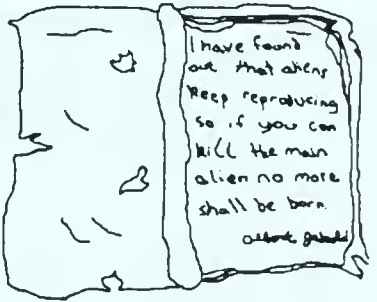 I have found
out that aliens
keep reproducing
so if you can
kill the main
alien no more
shall be born.